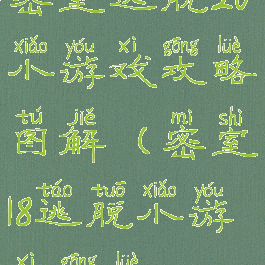 密室逃脱10
xiǎo yóu xì gōng lüè
小游戏攻略
tú jiě mì shì
图解(密室
táo tuō xiǎo yóu
18逃脱小游
xì gōng lüè